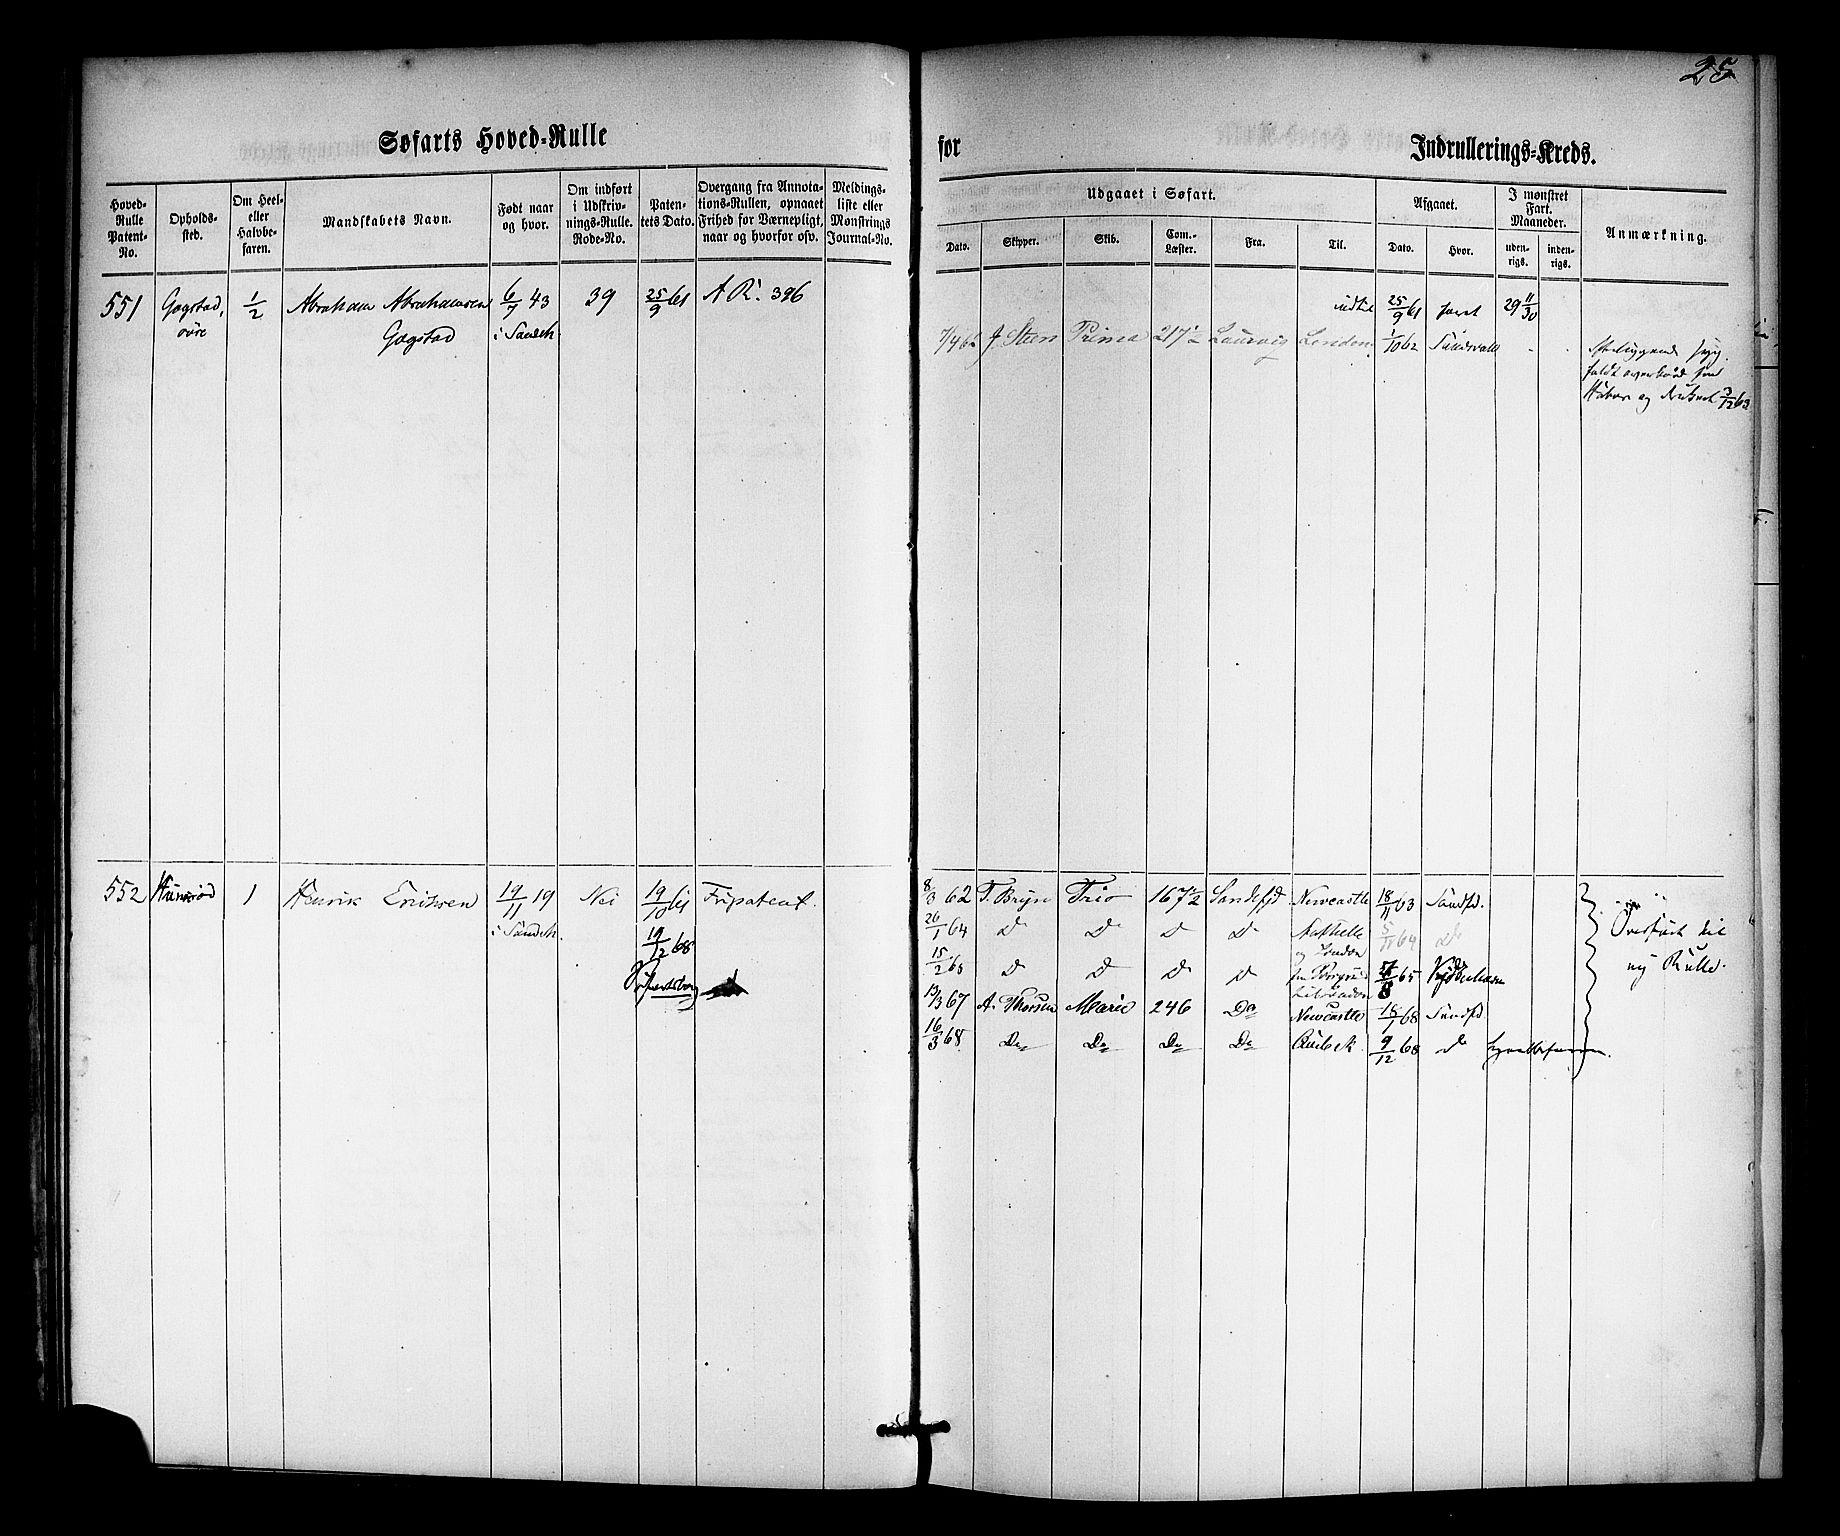 25
Søfarts Hoved-Rulle for Indrullerings-Kreds.
Hoved-Rulle Patent-No.
Opholds-sted.
Om Heel- eller Halvbe-faren.
Mandskabets Navn.
Født naar og hvor.
Om indført i Udskriv-nings-Rulle. Rode-No.
Paten-tets Dato.
Overgang fra Annota-tions-Rullen, opnaaet Frihed for Værnepligt, naar og hvorfor osv.
Meldings-liste eller Mønstrings Journal-No.
Udgaaet i Søfart.
Dato. Skipper. Skib. Com.-Læster. Fra. Til.
Afgaaet.
Dato. Hvor.
I mønstret Fart. Maaneder.
uden-rigs. inden-rigs.
Anmærkning.
551 Gogstad, 1/2 Abraham Abrahamsen 6/7 43 39 25/9 61 A R. 396 indtil 25/9 61 faret 29 11/30
øvre Gogstad i Sandeh.
7/4 62 J Steen Prima 217 1/2 Laurvig London 1/10 62 Sundsvall
faldt overbord fra
og druknet 3/12 63
552 1 Henrik Eriksen 19/11 19 Nei 19/10 61 Fripatent. 8/3 62 T. Bryn Trio 167 1/2 Sandefjd Newcastle 18/11 63 Sandfd.
i Sandeh. 19/12 68 26/1 64 D D D D 5/11 64 D Overført til
og London
15/2 65 D D D D 65 Kjøbenhavn ny Rulle.
13/3 67 A. Thorsen Maria 246 Do Newcastle 18/1 68 Sandfd
16/3 68 Do Do Do Do Quebek 9/12 68 d